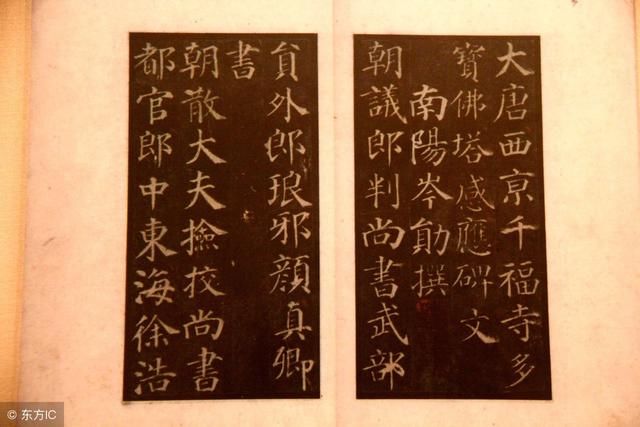 大唐西京千福寺多
寶佛塔感應碑文
南陽岑勛撰
朝議郎判尚書武部
員外郎琅邪顏真卿
書
朝散大夫撿挍尚書
都官郎中東海徐浩
© 东方IC